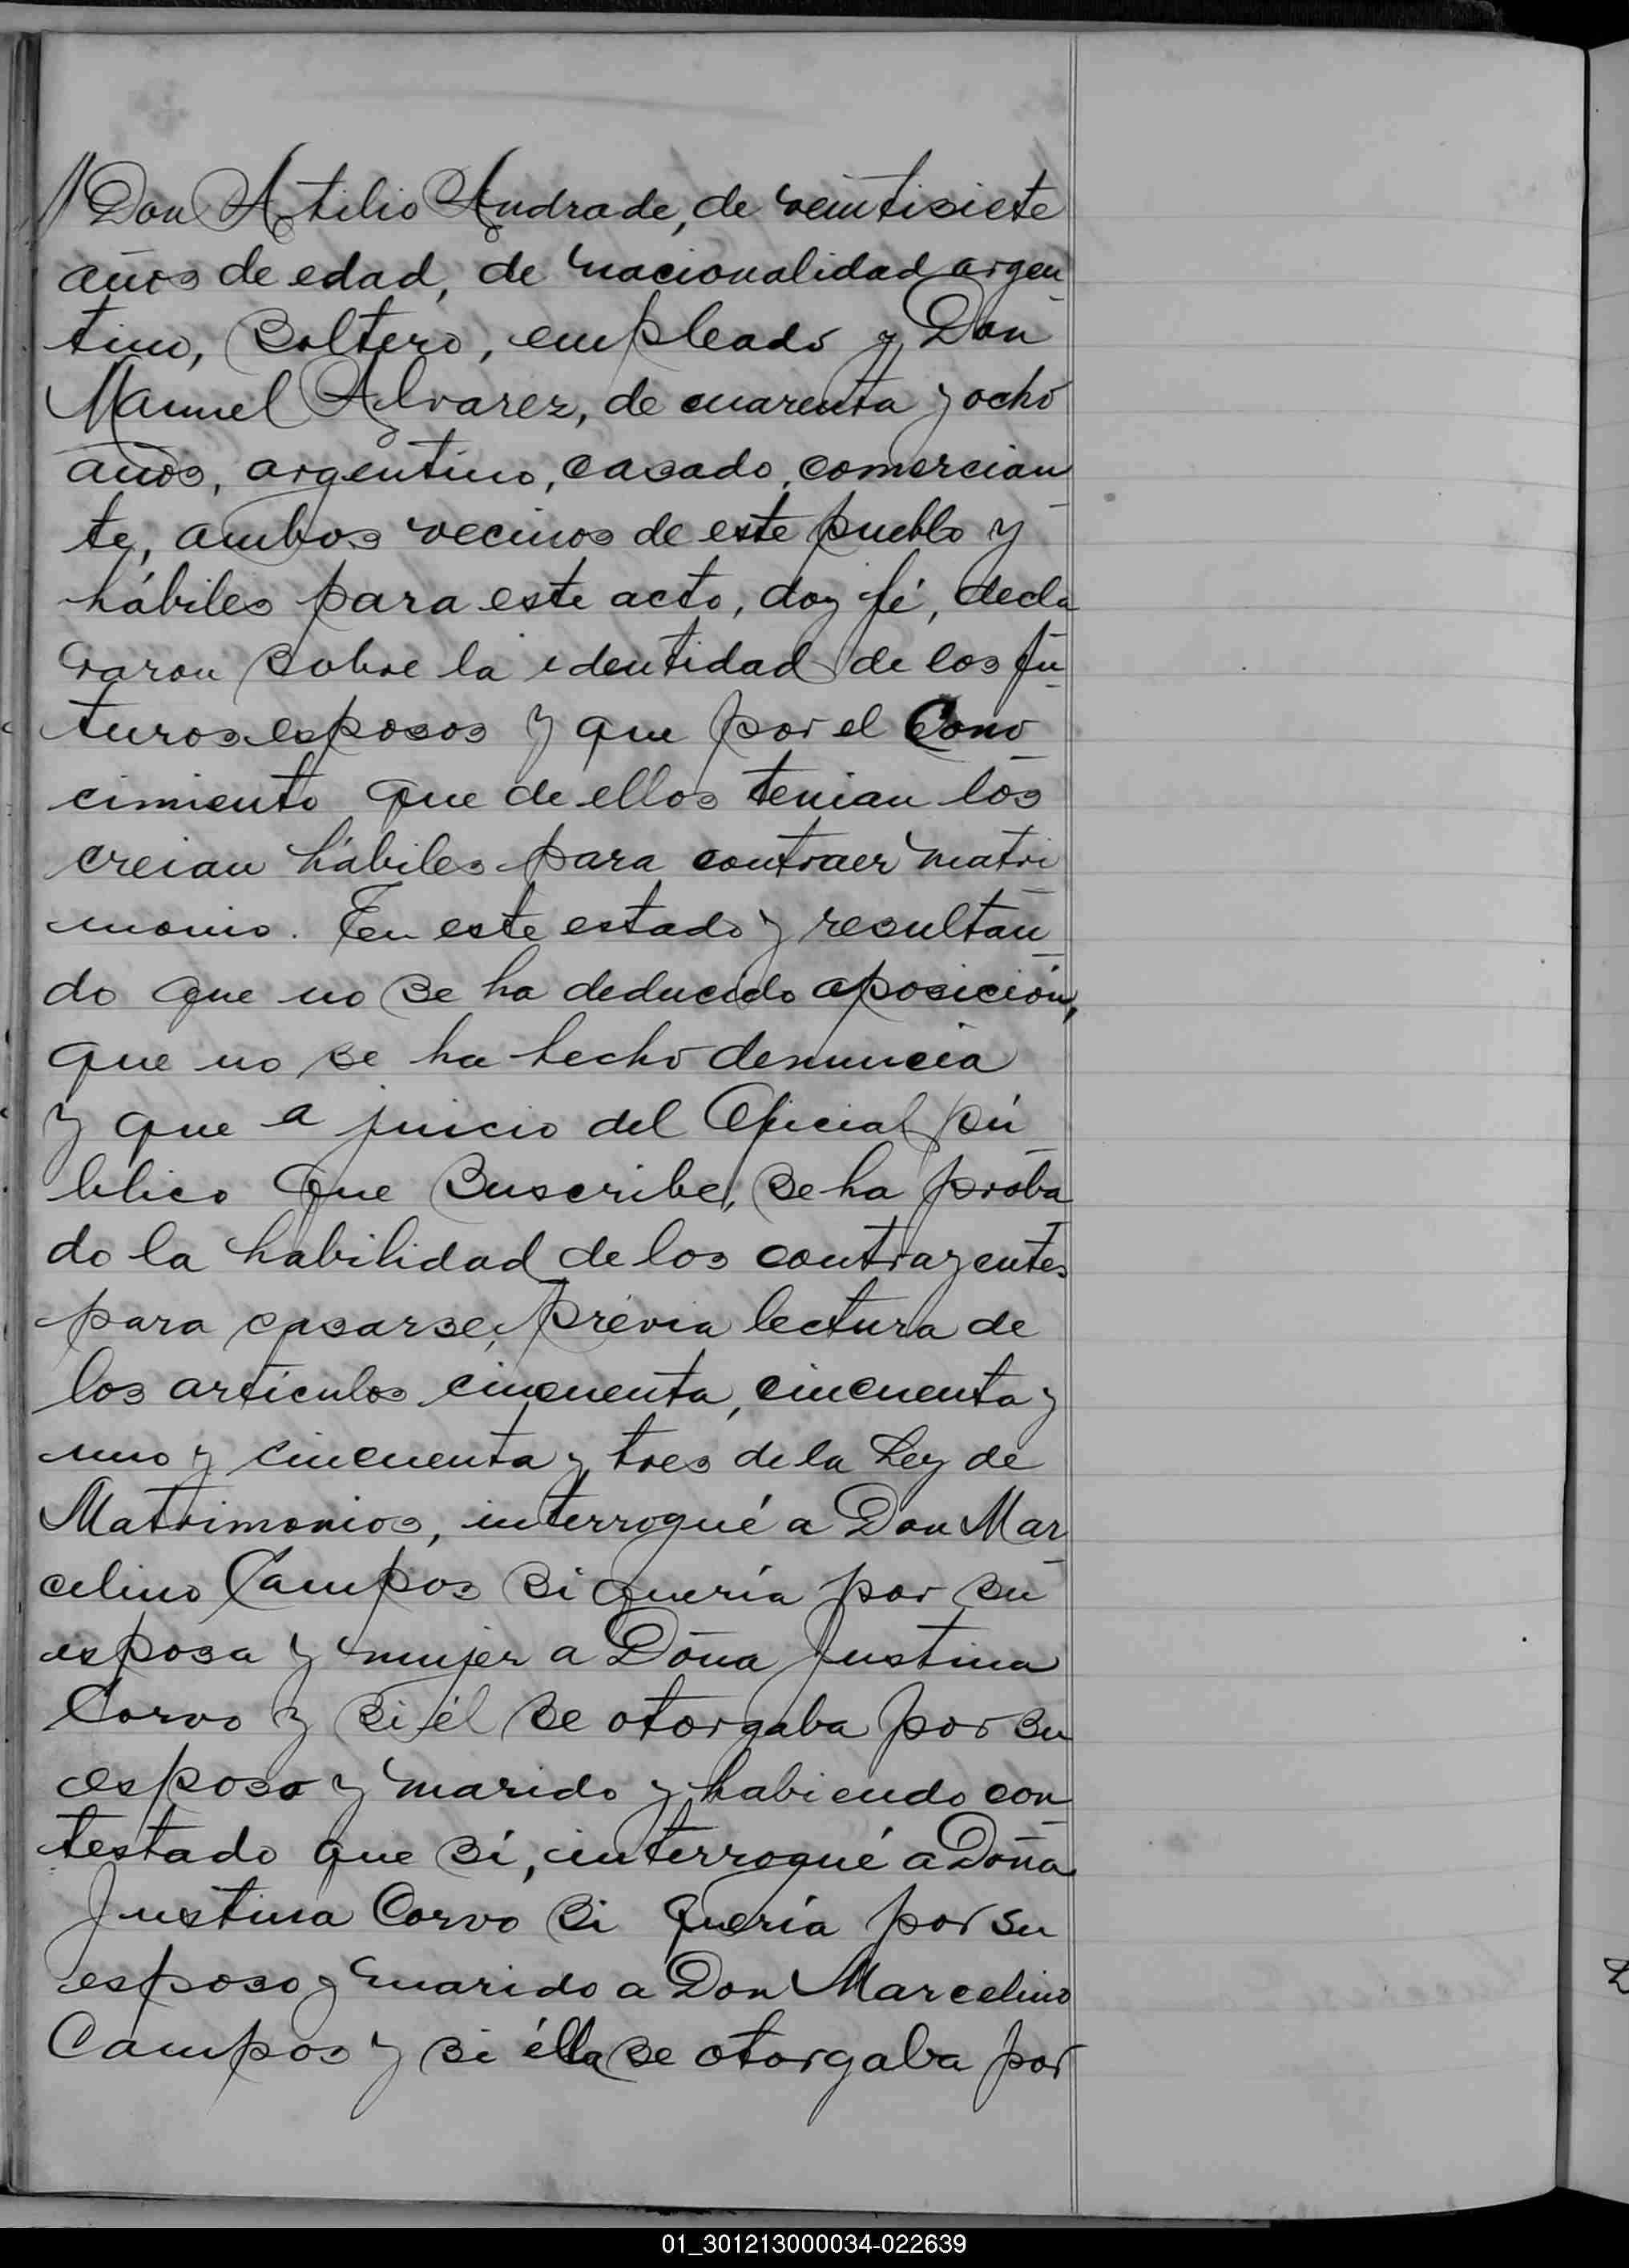 // Don Atilio Andrade, de veintisiete
años de edad, de nacionalidad argen
tino, soltero, empleado y Don
Manuel Alvarez, de cuarenta y ocho
años, argentino, casado, comercian
te, ambos vecinos de este pueblo y
hábiles para este acto, doy fé, decla
raron sobre la identidad de los fu
turos esposos y que por el cono
cimiento que de ellos tenian los
creian hábiles para contraer matri
monio. En este estado y resultan
do que no se ha deducido oposición,
que no se ha hecho denuncia
y que a juicio del Oficial pú
blico que suscribe, se ha proba
do la habilidad de los contrayentes
para casarse, prévia lectura de
los artículos cincuenta, cincuenta y
uno y cincuenta y tres de la Ley de
Matrimonios, interrogué a Don Mar
celino Campos si quería por su
esposa y mujer a Doña Justina
Corvo y si él se otorgaba por su
esposo y marido y habiendo con
testado que sí, interrogué a Doña
Justina Corvo si quería por su
esposo y marido a Don Marcelino
Campos y si élla se otorgaba por
01_301213000034-022639